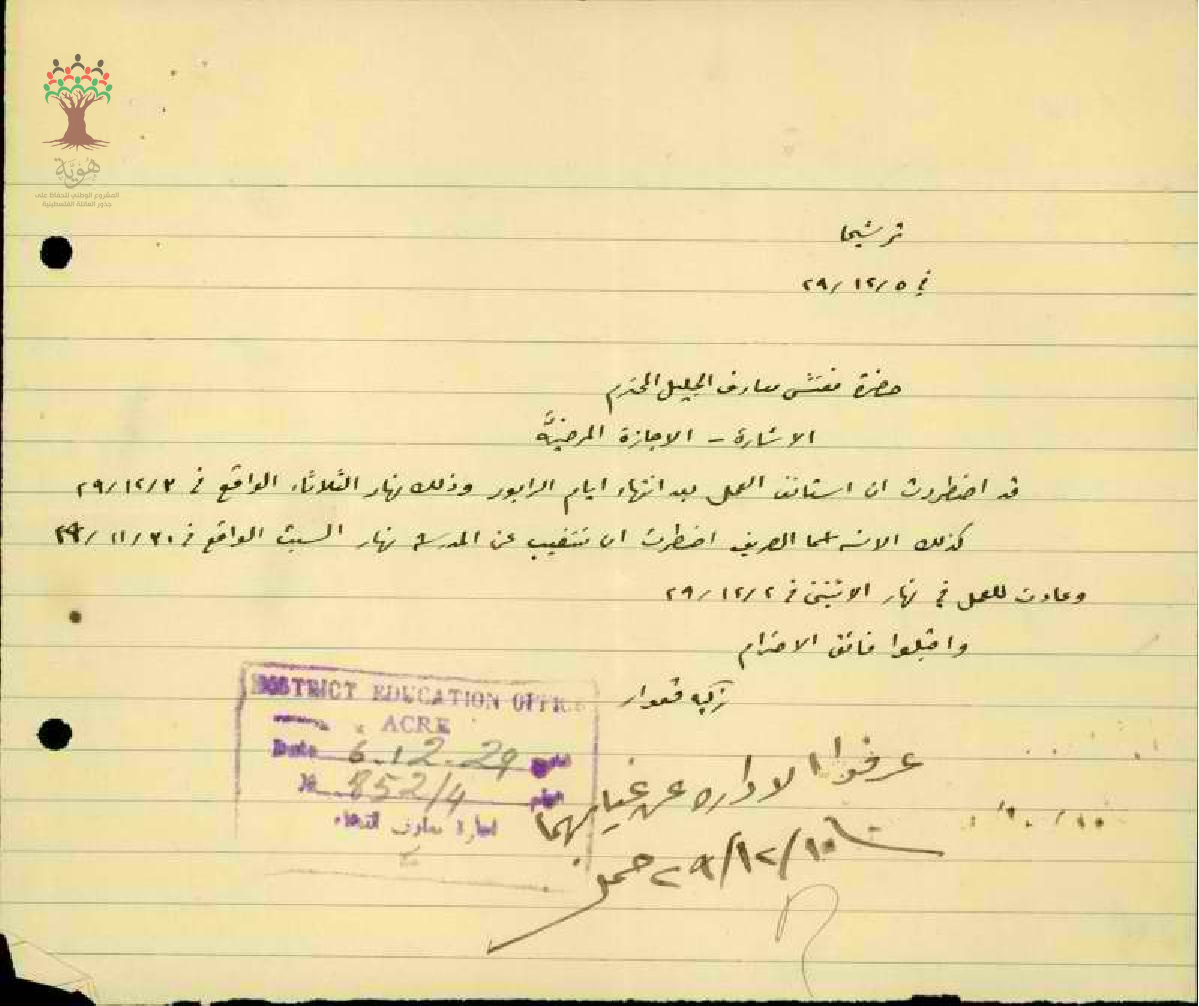 هُويَّة
المشروع الوطني للحفاظ على
جذور العائلة الفلسطينية
ترشيحا
في ٥/١٢/٢٩
حضرة مفتش معارف الجليل المحترم
الاشارة - الاجازة المرضيَّة
قد اضطررت ان استانف العمل بعد انتهاء ايام الرابور وذلك نهار الثلاثاء الواقع في ٣/١٢/٢٩
كذلك الانسه سلما العريف اضطرت ان تتغيب عن المدرسة نهار السبت الواقع في ٣٠/١١/٢٩
وعادت للعمل في نهار الاثنين في ٢/١٢/٢٩
واقبلوا فائق الاحترام
زكيه قعوار
DISTRICT EDUCATION OFFICE
ACRE
Date 6.12.29 التاريخ
No. 852/4 الرقم
ادارة معارف القضاء
عرفوا الادارة عن غيابهما
١٠/١٢/٢٩